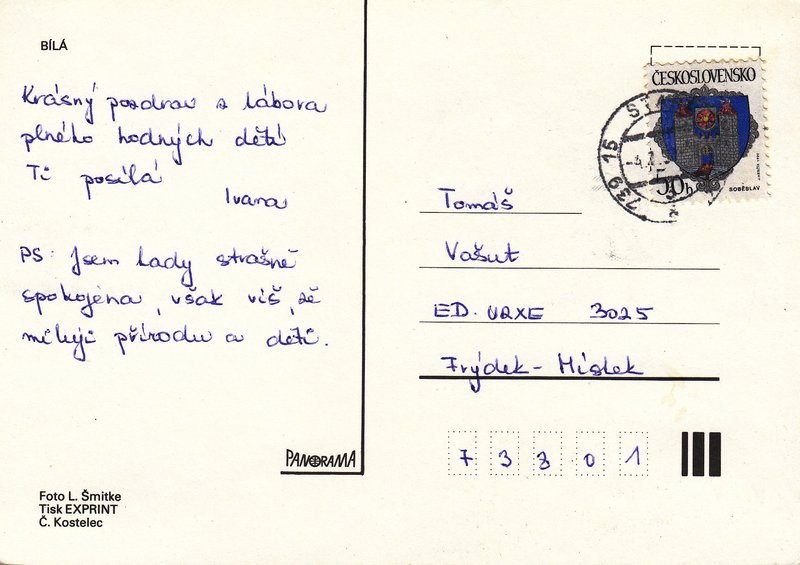 BÍLÁ
Krásný pozdrav z tábora
plného hodných dětí
Ti posílá
Ivana
PS: Jsem tady strašně
spokojena, však víš, že
miluji přírodu a děti.
PANORAMA
Foto L. Šmitke
Tisk EXPRINT
Č. Kostelec
ČESKOSLOVENSKO
50h
SOBĚSLAV
739 15
Tomáš
Vašut
ED. URXE 3025
Frýdek - Místek
73801